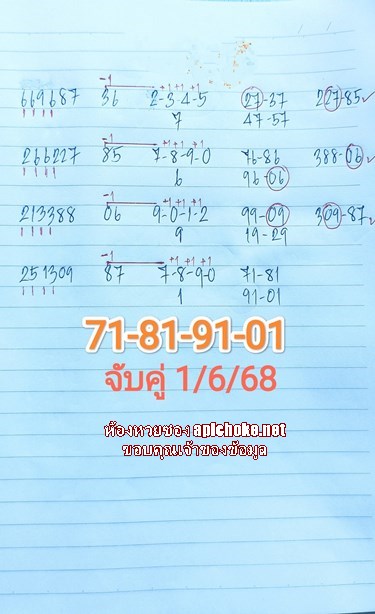 -1 +1 +1 +1
669687 36 2-3-4-5 27-37 227-85✓
7 47-57
+1 +1 +1
266227 85 7-8-9-0 76-86 388-06✓
6 96-06
-1 +1 +1 +1
213388 06 9-0-1-2 99-09 309-87✓
9 19-29
-1 +1 +1 +1
251309 87 7-8-9-0 71-81
1 91-01
71-81-91-01
จับคู่ 1/6/68
ห้องหวยซอง apichoke.net
ขอบคุณเจ้าของข้อมูล